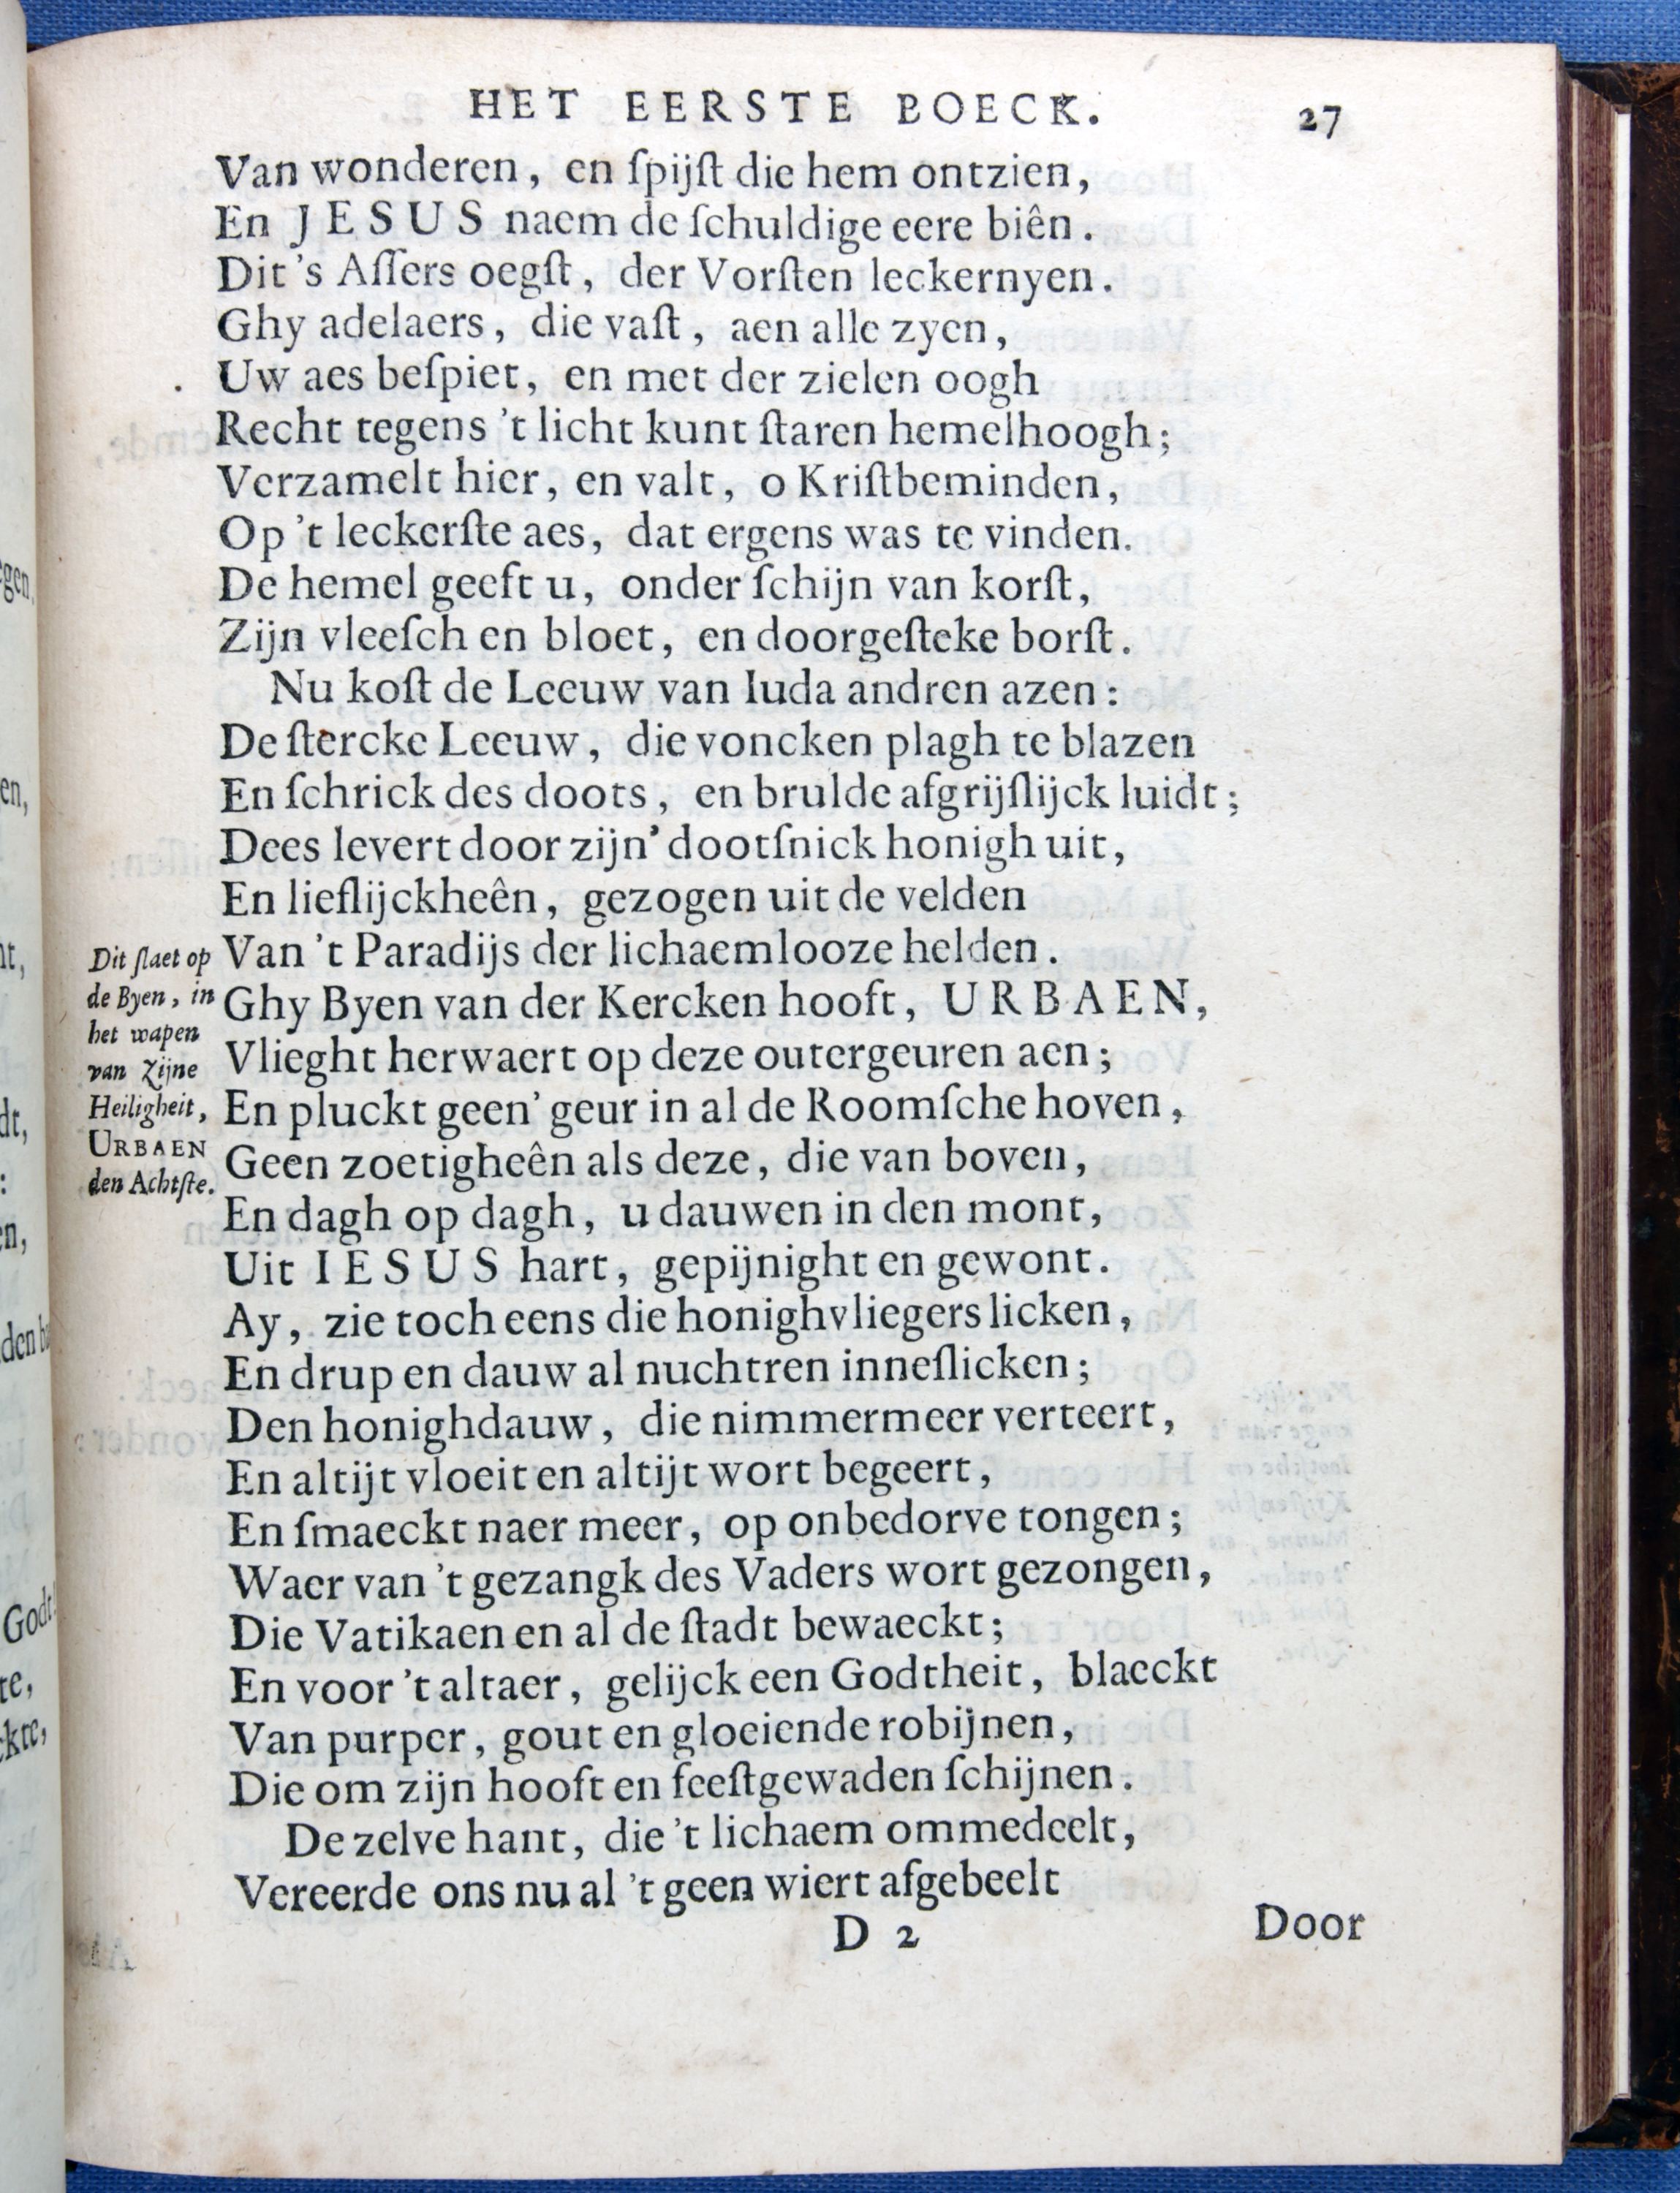 HET EERSTE BOECK. 27
Van wonderen, en ſpijſt die hem ontzien,
En JESUS naem de ſchuldige eere biên.
Dit 's Aſſers oegſt, der Vorſten leckernyen.
Ghy adelaers, die vaſt, aen alle zyen,
Uw aes beſpiet, en met der zielen oogh
Recht tegens 't licht kunt ſtaren hemelhoogh;
Verzamelt hier, en valt, o Kriſtbeminden,
Op 't leckerſte aes, dat ergens was te vinden.
De hemel geeft u, onder ſchijn van korſt,
Zijn vleeſch en bloet, en doorgeſteke borſt.
Nu koſt de Leeuw van Iuda andren azen:
De ſtercke Leeuw, die voncken plagh te blazen
En ſchrick des doots, en brulde afgrijſlijck luidt;
Dees levert door zijn' dootſnick honigh uit,
En lieflijckheên, gezogen uit de velden
Van 't Paradijs der lichaemlooze helden.
Ghy Byen van der Kercken hooft, URBAEN,
Vlieght herwaert op deze outergeuren aen;
En pluckt geen' geur in al de Roomſche hoven,
Geen zoetigheên als deze, die van boven,
En dagh op dagh, u dauwen in den mont,
Uit IESUS hart, gepijnight en gewont.
Ay, zie toch eens die honighvliegers licken,
En drup en dauw al nuchtren inneſlicken;
Den honighdauw, die nimmermeer verteert,
En altijt vloeit en altijt wort begeert,
En ſmaeckt naer meer, op onbedorve tongen;
Waer van 't gezangk des Vaders wort gezongen,
Die Vatikaen en al de ſtadt bewaeckt;
En voor 't altaer, gelijck een Godtheit, blaeckt
Van purper, gout en gloeiende robijnen,
Die om zijn hooft en feeſtgewaden ſchijnen.
De zelve hant, die 't lichaem ommedeelt,
Vereerde ons nu al 't geen wiert afgebeelt
D 2 Door
Dit ſlaet op
de Byen, in
het wapen
van Zijne
Heiligheit,
URBAEN
den Achtſte.
gen,
en,
dt,
:
en,
Godt!
te,